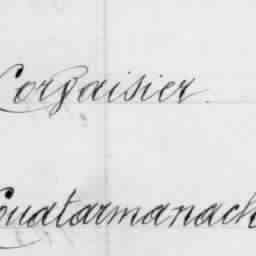 Corvaisier.
Couatarmanach